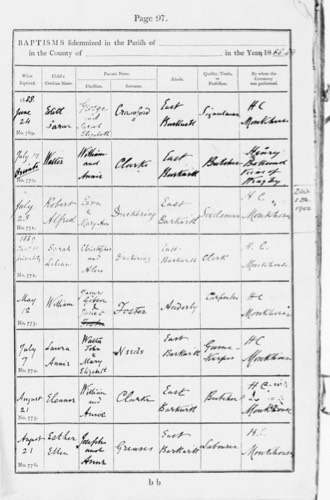 Page 97.
BAPTISMS solemnized in the Parish of
in the County of in the Year 18
When Baptized. Child's Christian Name. Parents Name. Abode. Quality, Trade, or Profession. By whom the Ceremony was performed.
Christian. Surname.
1888.
June 24 Sarah George and Sarah Elizabeth Crawford East Barkwith Signalman H C Monkhouse
No. 769.
July Private Walter William and Annie Clarke East Barkwith Butcher Vicar of Wragby
No. 770.
July 28 Robert Alfred and Mary Ann Duckering East Barkwith H. C. Monkhouse
No. 771.
1889
privately Sarah Lilian Christopher and Alice Duckering East Barkwith Clerk H. C. Monkhouse
No. 772.
May 12 William James Gibson & Foster Carpenter H C Monkhouse
No. 773.
July 7 Laura Annie Walter John & Mary Elizabeth Needs East Barkwith Game Keeper H C Monkhouse
No. 774.
August 21 Eleanor William and Annie Clarke East Barkwith Butcher H C Monkhouse
No. 775.
August 21 Esther Ellen Joseph and Annie Greaves East Barkwith Labourer H. C. Monkhouse
No. 776.
b b